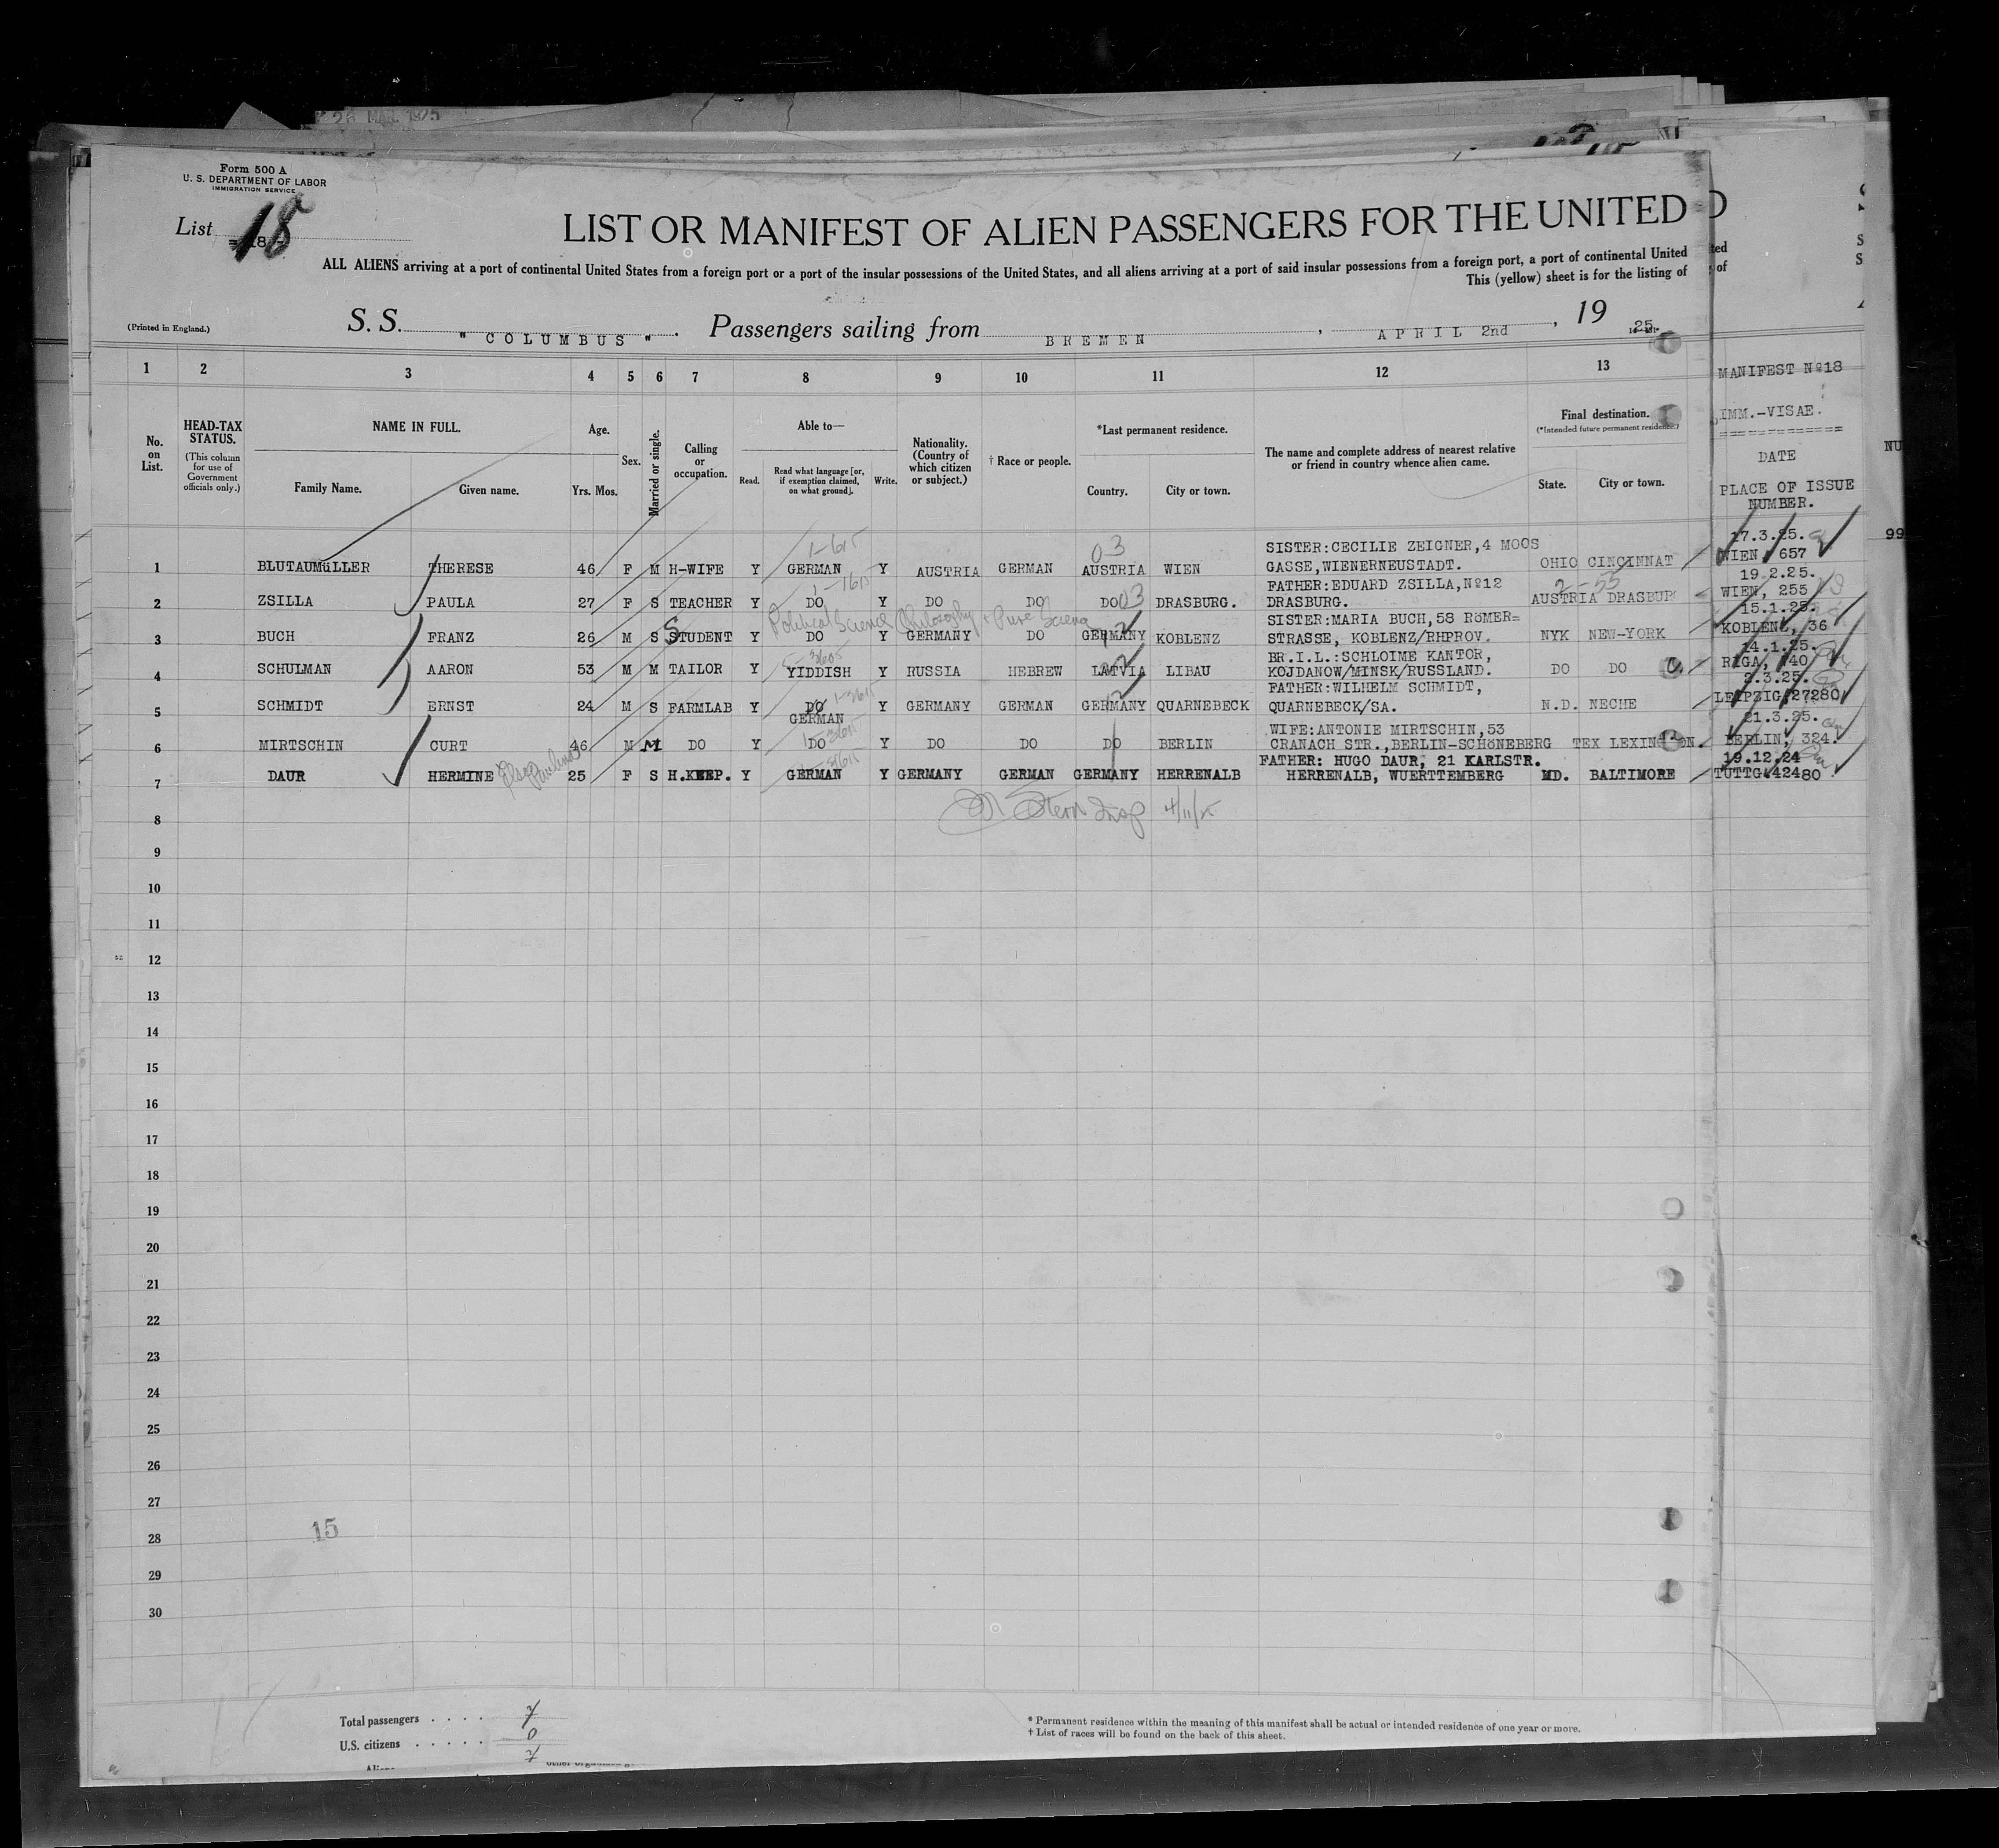 26 MAR. 1925
Form 500 A
U. S. DEPARTMENT OF LABOR
IMMIGRATION SERVICE
List 18
LIST OR MANIFEST OF ALIEN PASSENGERS FOR THE UNITED
ALL ALIENS arriving at a port of continental United States from a foreign port or a port of the insular possessions of the United States, and all aliens arriving at a port of said insular possessions from a foreign port, a port of continental United
This (yellow) sheet is for the listing of
(Printed in England.)
S. S. "COLUMBUS". Passengers sailing from BREMEN, APRIL 2nd, 19 25
1 2 3 4 5 6 7 8 9 10 11 12 13
MANIFEST Nº18
IMM.-VISAE.
DATE
PLACE OF ISSUE
NUMBER.
No. on List.
HEAD-TAX STATUS.
(This column for use of Government officials only.)
NAME IN FULL.
Family Name. Given name.
Age.
Yrs. Mos.
Sex.
Married or single.
Calling or occupation.
Able to—
Read. Read what language [or, if exemption claimed, on what ground]. Write.
Nationality. (Country of which citizen or subject.)
† Race or people.
*Last permanent residence.
Country. City or town.
The name and complete address of nearest relative or friend in country whence alien came.
Final destination.
(*Intended future permanent residence.)
State. City or town.
SISTER:CECILIE ZEIGNER,4 MOOS 17.3.25.
1 BLUTAUMüLLER THERESE 46 F M H-WIFE Y GERMAN Y AUSTRIA GERMAN AUSTRIA WIEN GASSE,WIENERNEUSTADT. OHIO CINCINNAT WIEN, 657
FATHER:EDUARD ZSILLA,Nº12 19.2.25.
2 ZSILLA PAULA 27 F S TEACHER Y DO Y DO DO DO 03 DRASBURG. DRASBURG. AUSTRIA DRASBURG WIEN, 255
Political Science Philosophy + Pure Science
SISTER:MARIA BUCH,58 RöMER= 15.1.25.
3 BUCH FRANZ 26 M S STUDENT Y DO Y GERMANY DO GERMANY KOBLENZ STRASSE, KOBLENZ/RHPROV. NYK NEW-YORK KOBLENZ, 36
BR.I.L.:SCHLOIME KANTOR, 14.1.25.
4 SCHULMAN AARON 53 M M TAILOR Y YIDDISH Y RUSSIA HEBREW LATVIA LIBAU KOJDANOW/MINSK/RUSSLAND. DO DO RIGA, 40
FATHER:WILHELM SCHMIDT, 2.3.25.
5 SCHMIDT ERNST 24 M S FARMLAB Y DO GERMAN Y GERMANY GERMAN GERMANY QUARNEBECK QUARNEBECK/SA. N.D. NECHE LEIPZIG, 27280
WIFE:ANTONIE MIRTSCHIN,53 21.3.25.
6 MIRTSCHIN CURT 46 M M DO Y DO Y DO DO DO BERLIN CRANACH STR.,BERLIN-SCHöNEBERG TEX LEXINGTON. BERLIN, 324.
FATHER: HUGO DAUR, 21 KARLSTR. 19.12.24
7 DAUR HERMINE 25 F S H.KEEP. Y GERMAN Y GERMANY GERMAN GERMANY HERRENALB HERRENALB, WUERTTEMBERG MD. BALTIMORE TUTTG.42480
Stern Insp 4/11/25
8
9
10
11
12
13
14
15
16
17
18
19
20
21
22
23
24
25
26
27
28
29
30
15
Total passengers . . . . 7
U.S. citizens . . . . . 0
7
* Permanent residence within the meaning of this manifest shall be actual or intended residence of one year or more.
† List of races will be found on the back of this sheet.